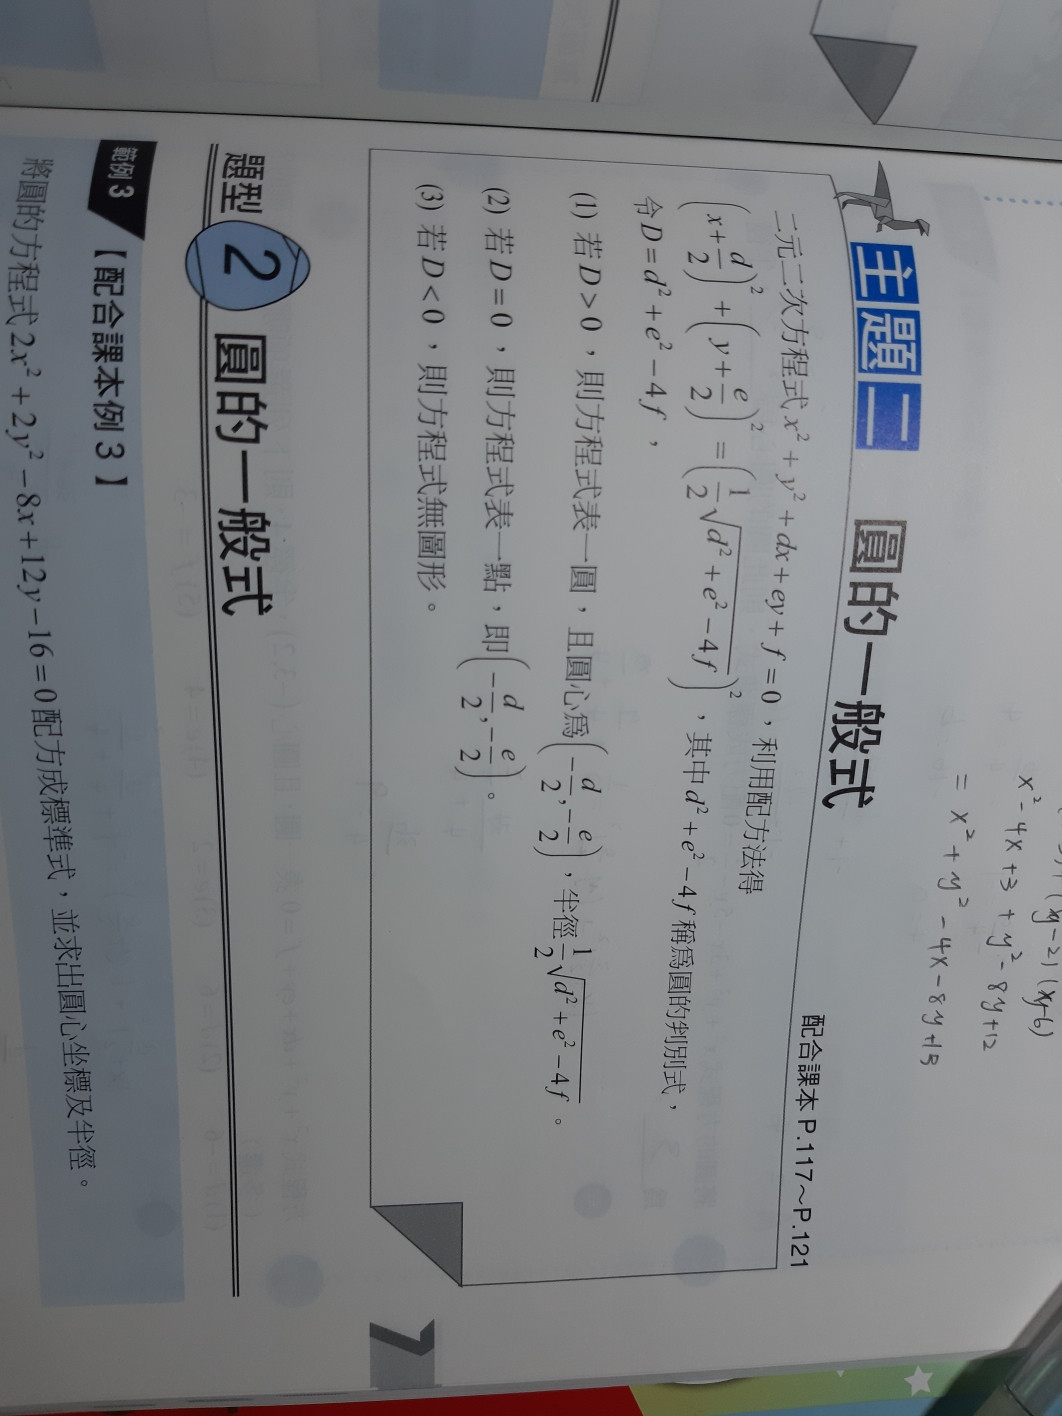 x² - 4x + 3 + y² - 8y + 12
= x² + y² - 4x - 8y + 15
主題二 圓的一般式
配合課本 P.117～P.121
二元二次方程式 x² + y² + dx + ey + f = 0，利用配方法得
(x + d/2)² + (y + e/2)² = (1/2 √(d² + e² - 4f))²，其中 d² + e² - 4f 稱為圓的判別式，
令 D = d² + e² - 4f，
(1) 若 D > 0，則方程式表一圓，且圓心為 (-d/2, -e/2)，半徑 1/2 √(d² + e² - 4f)。
(2) 若 D = 0，則方程式表一點，即 (-d/2, -e/2)。
(3) 若 D < 0，則方程式無圖形。
題型 2 圓的一般式
範例 3 【配合課本例 3】
將圓的方程式 2x² + 2y² - 8x + 12y - 16 = 0 配方成標準式，並求出圓心坐標及半徑。